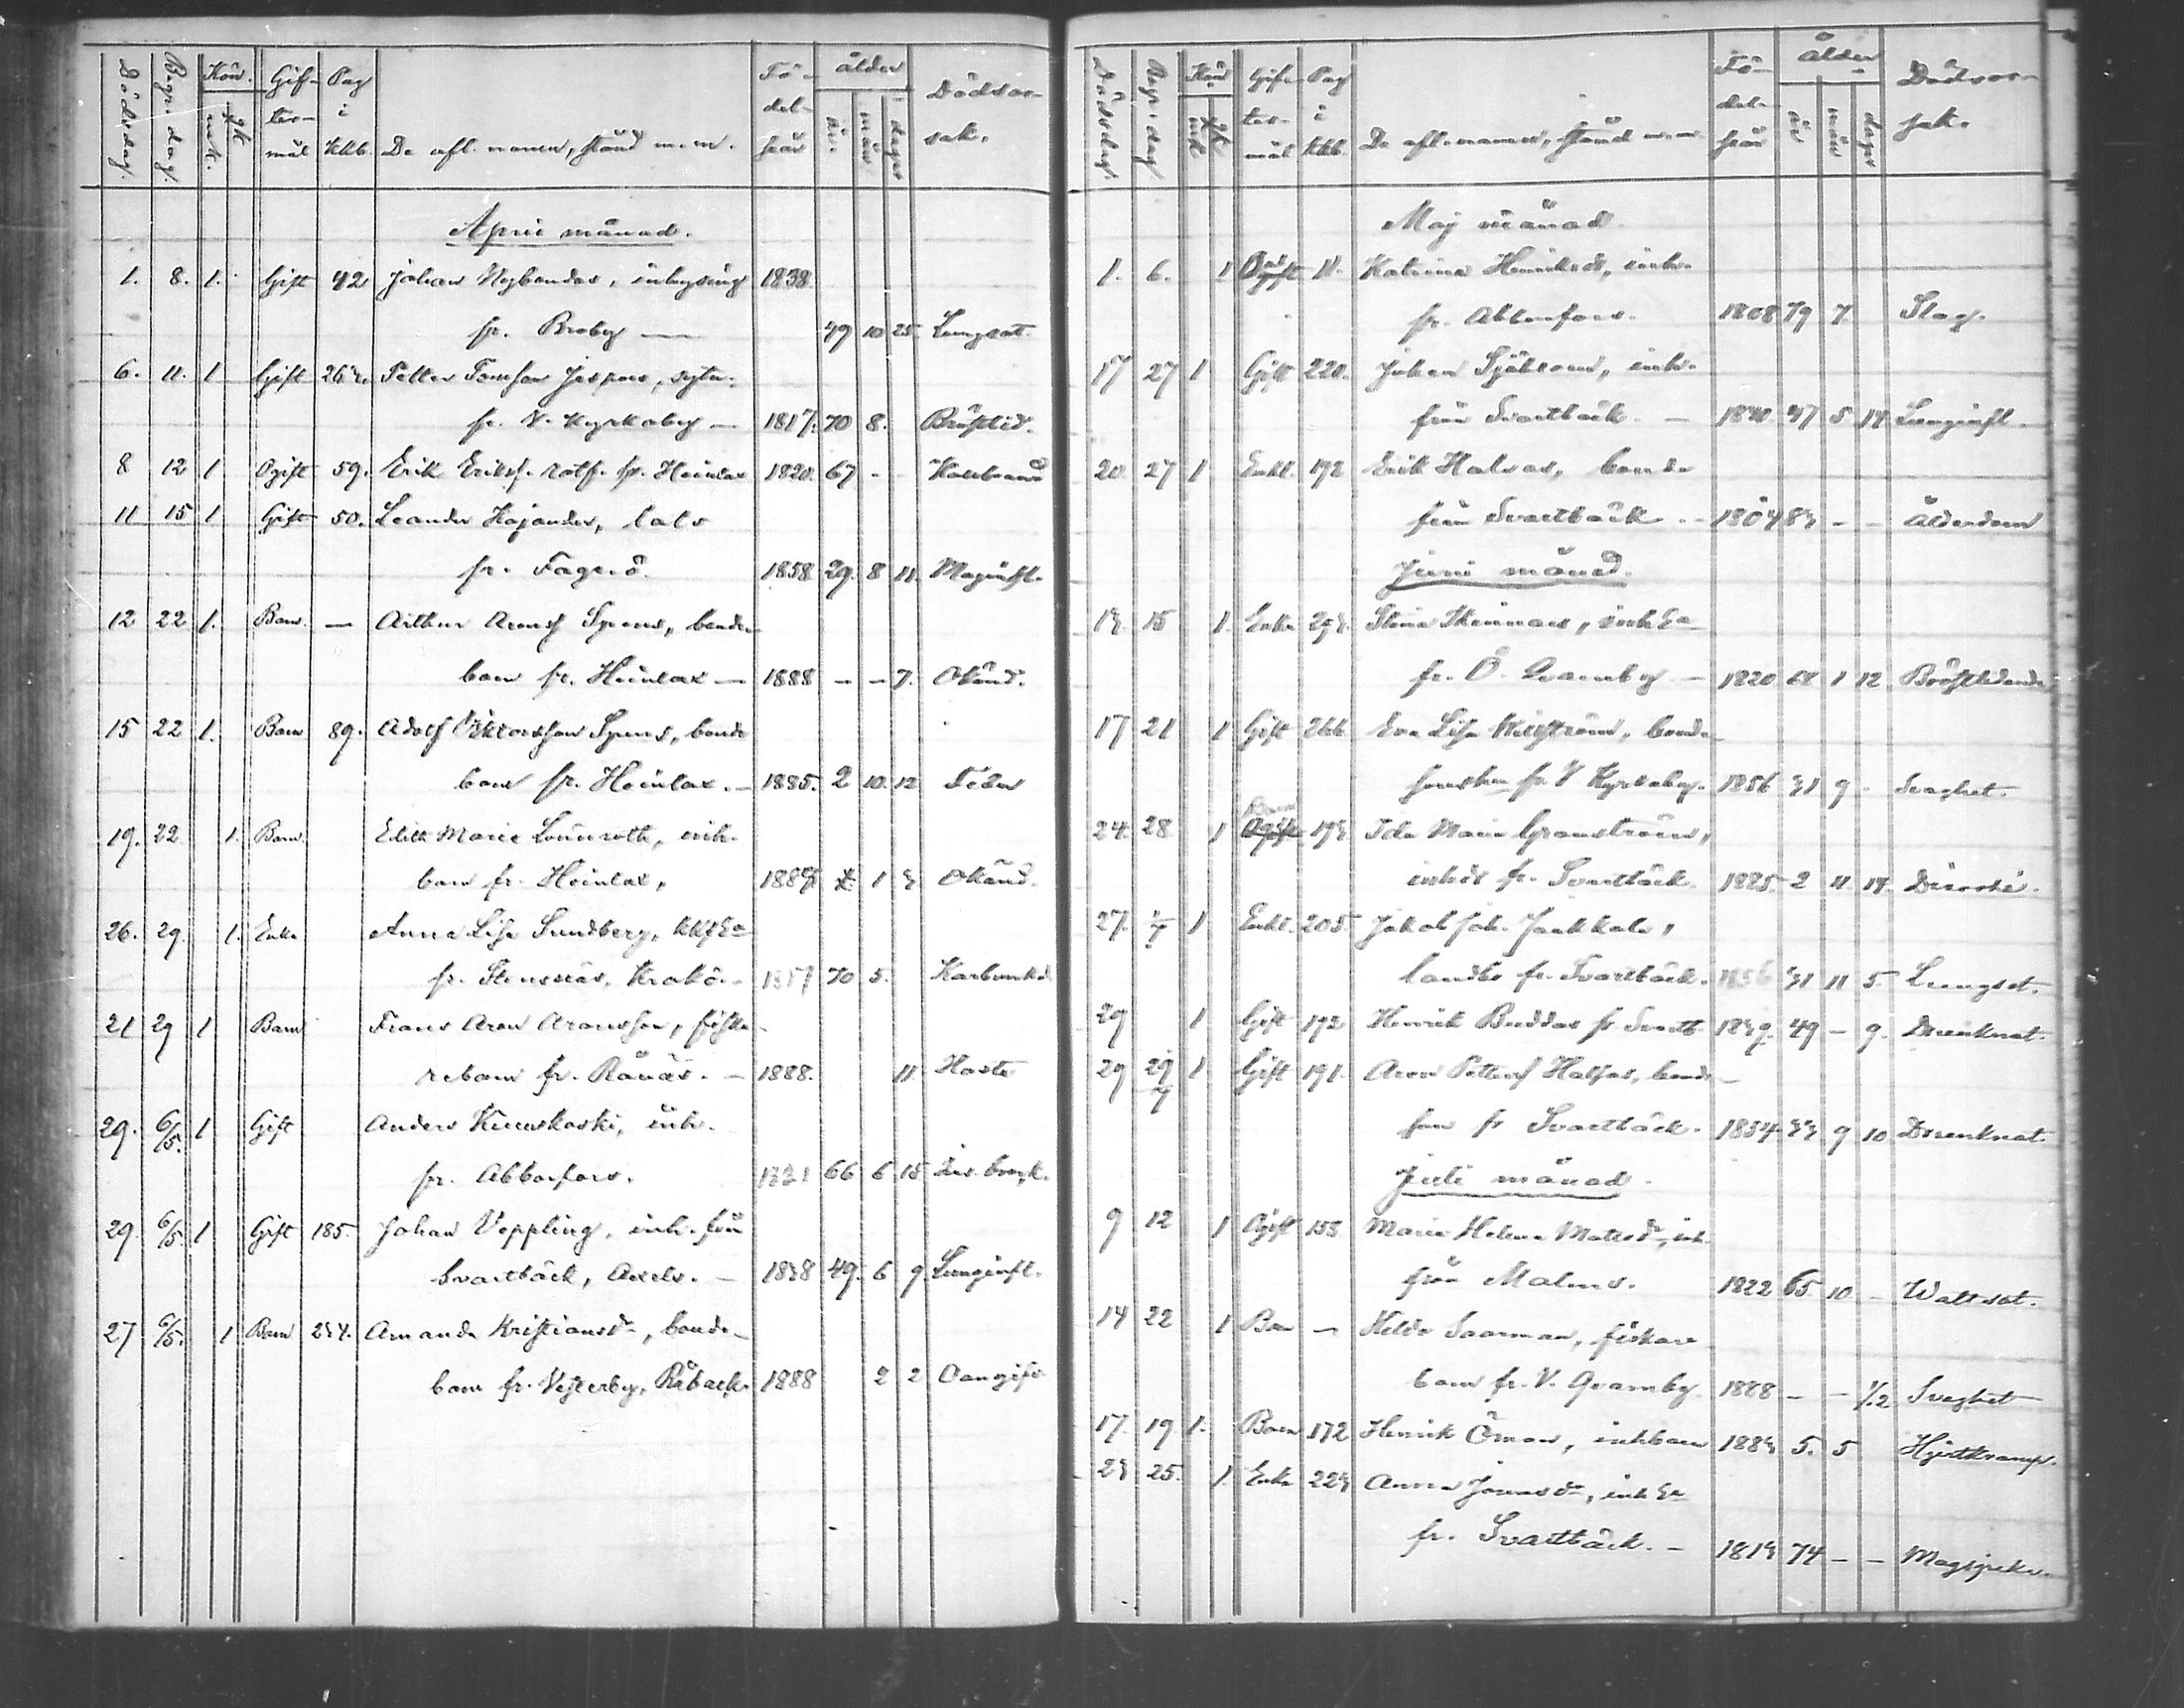 Dödsdag. Begr. dag. Kön. mk. qk. Giftermål Pag i Kkb. De afl. namn, stånd m. m. Födelseår ålder år. mån dagar Dödsorsak.
April månad.
1. 8. 1. Gift 42 Johan Nybondas, inhysing 1838.
fr. Broby — 49 10 25. Lungsot.
6. 11. 1 Gift Petter Tomsson Jespers,
fr. V. Kyrkoby — 1817. 70 8. Bröstlid.
8 12 1 Ogift 59. Erik Eriksf. rotf. fr. Heinlax 1820. 67 - - Kallbrand
11 15 1 Gift 50. Leander Kajander, lots
fr. Fagerö. 1858 29. 8 11. Maginfl.
12 22 1. Barn. — Arthur Aronsf Spens, bonde-
barn fr. Heinlax — 1888 - - 7. Okänd.
15 22 1. Barn 89. Adolf Viktorsson Spens, bonde
barn fr. Heinlax. — 1885. 2 10. 12 Feber
19. 22 1. Barn. Edith Maria Lönnroth, inh.
barn fr. Heinlax, 1 3 Okänd.
26. 29. 1. Enka Anna Lisa Sundberg,
fr. Stensnäs, Krakö. - 1817 70 5. Karbunkel
21 29 1 Barn Frans Aron Aronsson, fiska-
rebarn fr. Rönäs. — 1888. 11 Hosta
29. 6/5. 1 Gift Anders Kinuskoski, inh.
fr. Abborfors. 1821 66 6 15
29. 6/5. 1 Gift 185. Johan Veppling, inh. från
Svartbäck, Axels. — 1838 49. 6 9. Lunginfl.
27 6/5. 1 Barn 234. Amanda Kristiansdr, bonde-
barn fr. Vesterby, Råbacka 1888 2 2 Oangifv.
Dödsdag. Begr. dag Kön mk qk Giftermål Pag i Kkb. De afl. namn, stånd m. m. Födelseår Ålder år mån dagar Dödsorsak.
Maj månad
1. 6. 1 11. Katrina Henriksdr, inh.
fr. Abborfors. 1808 79 7. Slag.
17 27 1 Gift 220. Johan Sjöblom, inh.
från Svartbäck. — 1840. 47 5 14 Lunginfl.
20. 27 1. Enkl. 192 Erik Halvas, bonde
från Svartbäck. - 1804 83 - - Ålderdom
Juni månad.
13. 15 1. Enka 293. Stina Skinnars, inh Ea
fr. Ö. Qvarnby — 1820 68 1 12 Bröstlidande
17 21 1 Gift 266. Eva Lisa Hellström, bonde-
hustru fr. V Kyrkoby. 1856 31 9 - Svaghet.
24. 28 1 Barn Ogift 193. Ida Maria Granström,
inhdr fr. Svartbäck. 1885. 2 11. 14. Diarrhé.
27. 1/7 1 Enkl. 205. Jakob Joh. Jaakkola,
landbo fr. Svartbäck. 1856 31 11 5. Lungsot.
29 1 Gift 192 Henrik Buddas fr Svartb. 1839. 49 - 9. Drunknat.
29 29/7 1 Gift 191. Aron Pettersf Halfas, bonde-
son fr Svartbäck. 1854. 33 9 10 Drunknat.
Juli månad.
9 12 1 Ogift 153 Maria Helena Matsdr, inh
från Malms. 1822 65. 10. - Wattsot.
14 22 1 Barn — Hilda Saarman, fiskare
barn fr. V. Qvarnby. 1888 - - 1/2 Svaghet
17. 19 1. Barn 172 Henrik Öman, inhbarn 1883 5. 5 Hjertkramp.
23 25. 1. Enka 223 Anna Jonasdr, inh Ea
fr. Svartbäck. — 1813 74 - -